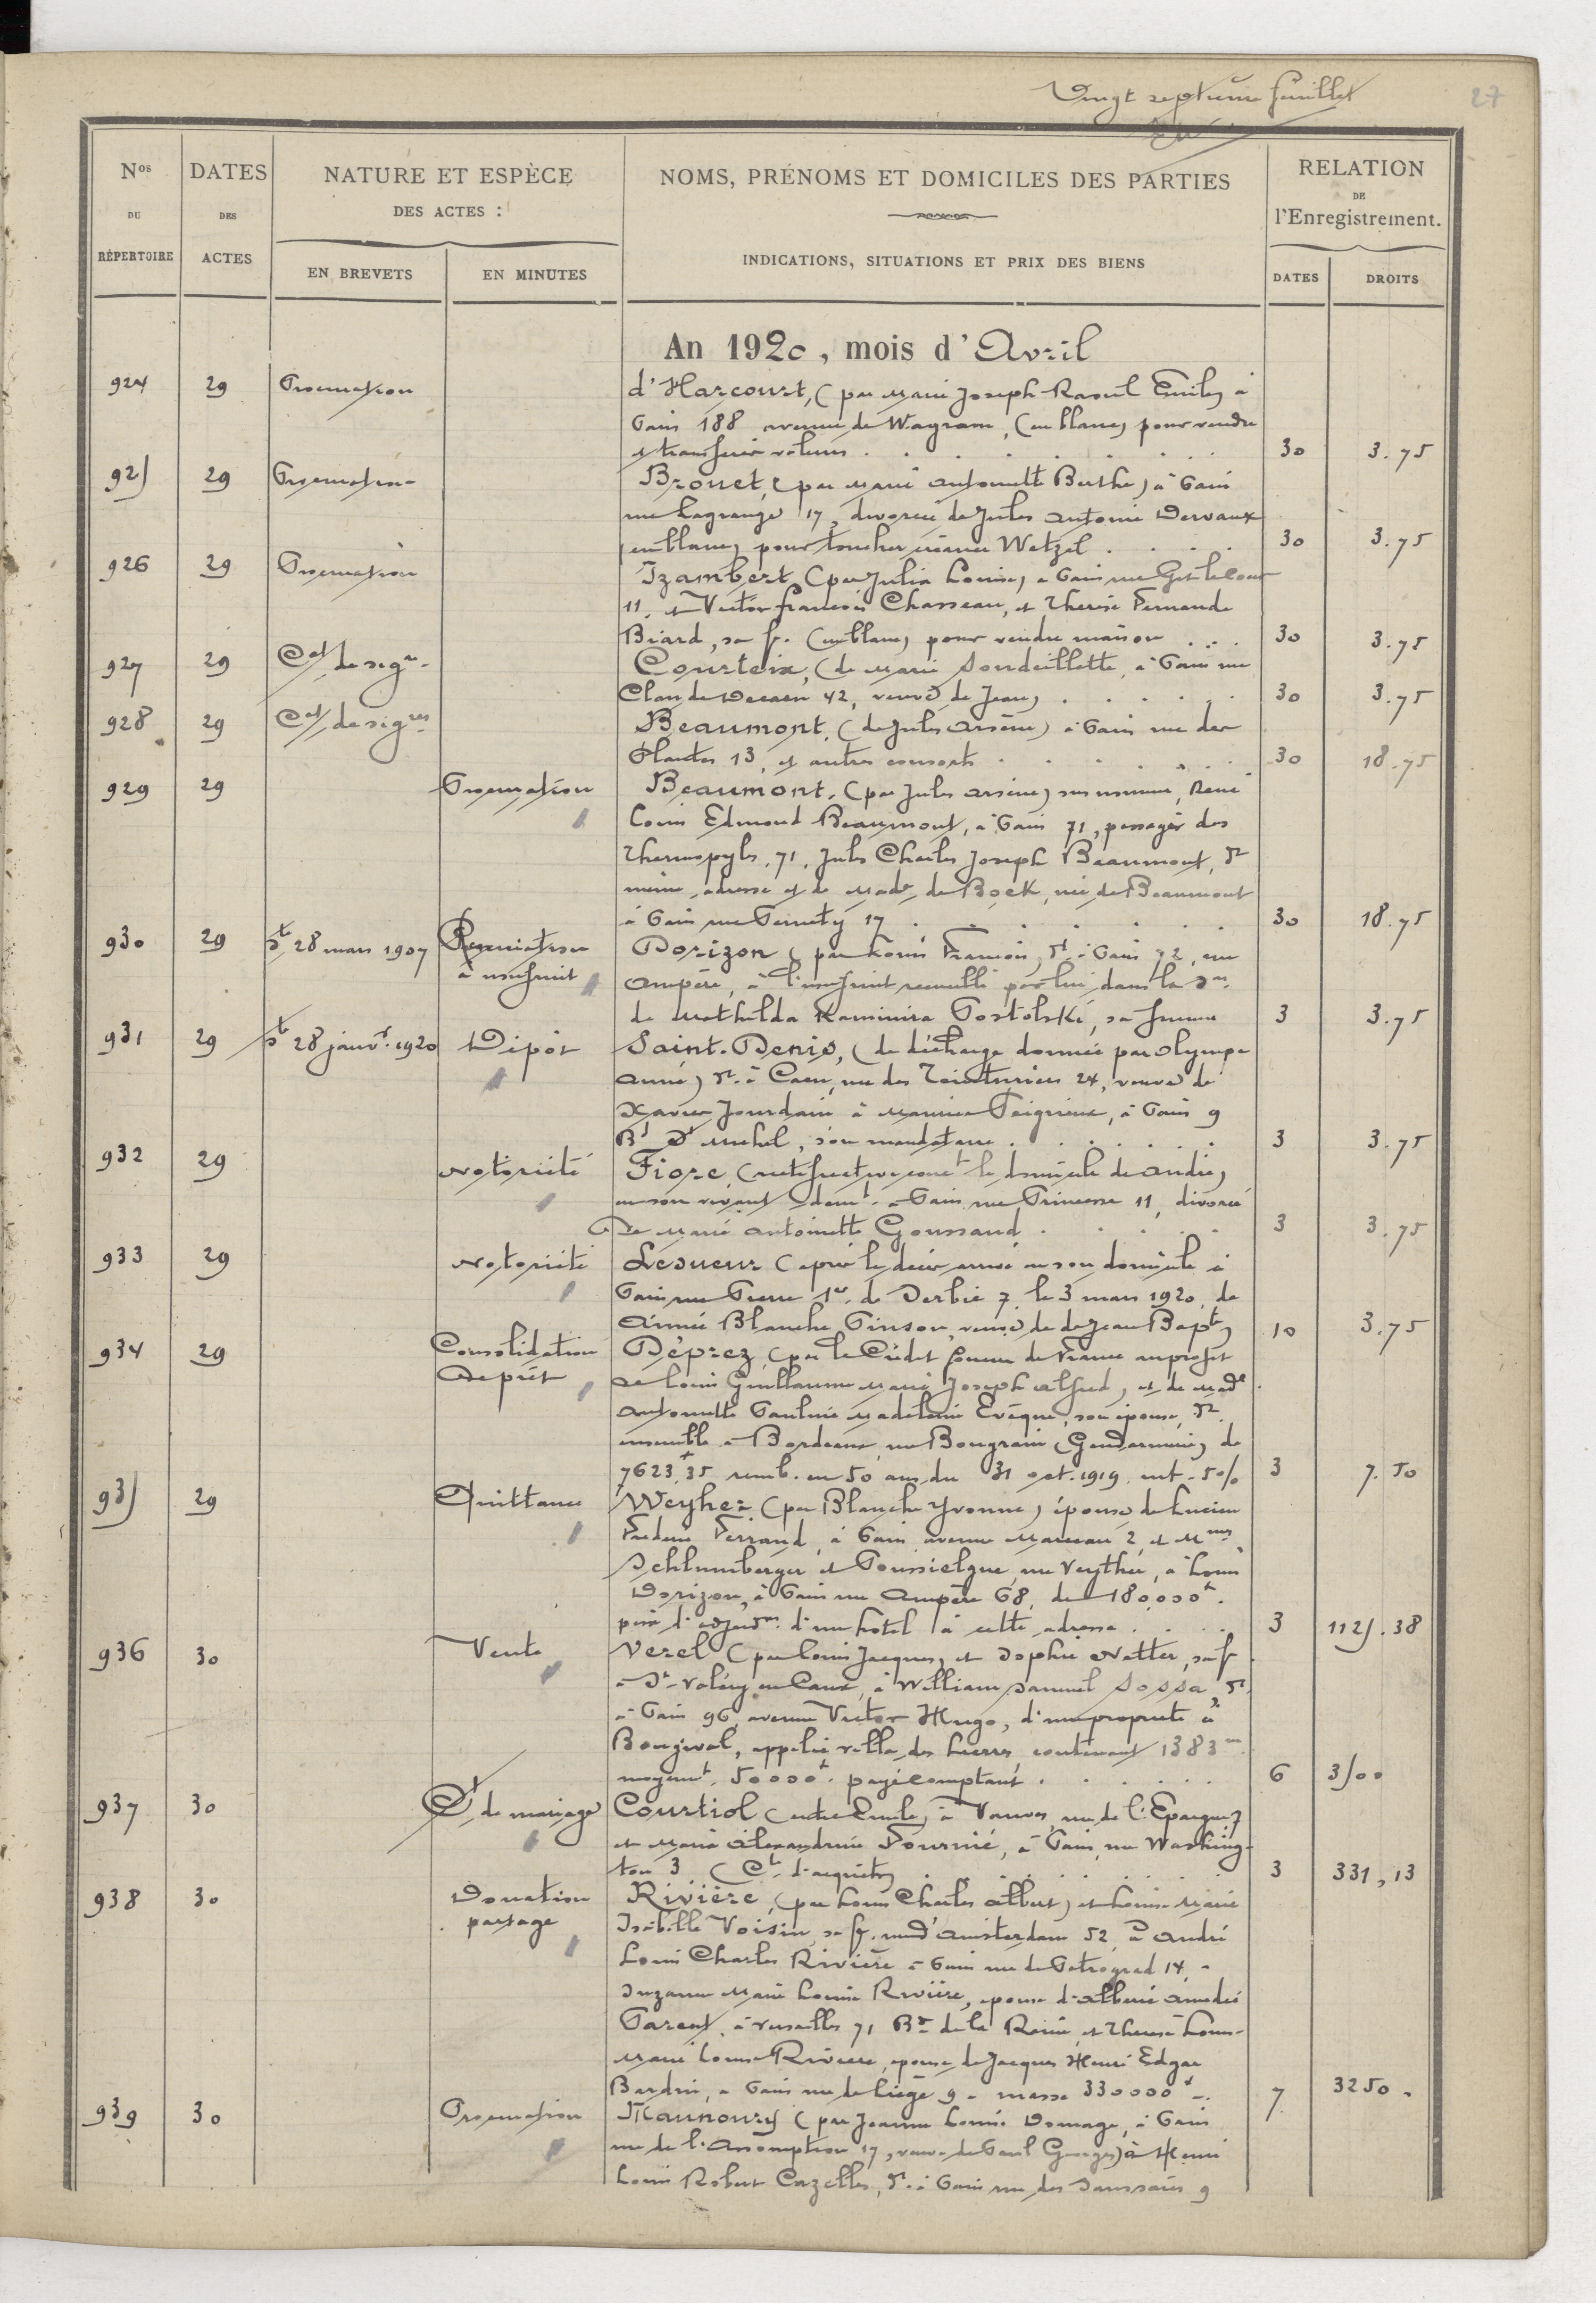 Vingt septième feuillet
27
Nos DU RÉPERTOIRE
DATES DES ACTES
NATURE ET ESPÈCE DES ACTES :
EN BREVETS
EN MINUTES
NOMS, PRÉNOMS ET DOMICILES DES PARTIES
INDICATIONS, SITUATIONS ET PRIX DES BIENS
RELATION DE l'Enregistrement.
DATES
DROITS
An 1920, mois d'Avril
924 29 Procuration d'Harcourt, (par Marie Joseph Raoul Emile) à
Paris 188 avenue de Wagram, (en blanc) pour vendre
et transférer valeurs . . . 30 3.75
925 29 Procuration Brouet, (par Marie Antoinette Berthe) à Paris
rue Lagrange 17, divorcée de Jules Antoine Dervaux
(en blanc) pour toucher créance Wetzel . . . 30 3.75
926 29 Procuration Izambert (par Julia Louise) à Paris rue Git le Cœur
11, et Victor François Chasseau, et Thérèse Fernande
Biard, sa f. (en blanc) pour vendre maison . . . 30 3.75
927 29 Cat de sigre Courteix, (de Marie Soudeillette, à Paris rue
Claude Decaen 42, veuve de Jean) . . . 30 3.75
928 29 Cat de sigres Beaumont, (de Jules Arsène) à Paris rue des
Plantes 13, et autres consorts . . . 30 18.75
929 29 Procuration Beaumont, (par Jules Arsène) sus nommé, René
Louis Edmond Beaumont, à Paris 71, passage des
Thermopyles, 71, Jules Charles Joseph Beaumont, dt
même adresse et de Made de Bock, née de Beaumont
à Paris rue Pernety 17 . . . 30 18.75
930 29 st 28 mars 1907 Renonciation Dorizon (par Louis François) dt à Paris 72, rue
à usufruit Ampère, à l'usufruit recueilli par lui dans la son
de Mathilda Kaminira Postolski, sa femme 3 3.75
931 29 st 28 janvr 1920 Dépôt Saint-Denis, (de décharge donnée par Olympe
Anné) dt à Caen, rue des Teinturiers 24, veuve de
Xavier Jourdain à Maurice Peigrieux, à Paris 9
Bd St Michel, son mandataire . . . 3 3.75
932 29 Notoriété Fiore, (rectificative conct le domicile de André)
en son vivant demt à Paris rue Princesse 11, divorcé
de Marie Antoinette Goussaud . . . 3 3.75
933 29 Notoriété Lesueur (après le décès arrivé en son domicile à
Paris rue Pierre 1er de Serbie 7, le 3 mars 1920, de
Aimée Blanche Pinson, veuve de Jean Bapt) 10 3.75
934 29 Consolidation Déprez, (par le Crédit foncier de France au profit
de prêt de Louis Guillaume Marie Joseph Alfred, et de Made
Antoinette Pauline Madeleine Evêque, son épouse, dt
ensemble à Bordeaux, rue Bougrain (Gendarmerie) de
7623f35 remb. en 50 ans du 31 oct. 1919 int. 5% 3 7.50
935 29 Quittance Weyher (par Blanche Yvonne) épouse de Lucien
Frédéric Ferrand, à Paris avenue Marceau 2, et Mmes
Schlumberger et Poussielgue, née Veyther, à Louis
Dorizon, à Paris rue Ampère 68, de 180,000f.
prix d'adjudon d'un hôtel à cette adresse . . . 3 1125.38
936 30 Vente Verel (par Louis Jacques) et Sophie Natter, sa f
à St-Valéry en Caux, à William Samuel Sossa, dt
à Paris 96, avenue Victor Hugo, d'une propriété à
Bougival, appelée villa des lierres contenant 1383m
moyent 50000f payé comptant . . . 6 3500
937 30 Ct de mariage Courtiol (entre Emile) à Vanves, rue de l'Epargne 7
et Maria Alexandrine Fournié, à Paris, rue Washing-
ton 3 (Cté d'acquêts) . . . 3 331,13
938 30 Donation Rivière, (par Louis Charles Albert) et Louise Marie
partage Isabelle Voisin, sa f. rue d'Amsterdam 52, à André
Louis Charles Rivière à Paris rue de Pétrograd 14, à
Suzanne Marie Louise Rivière, épouse d'Alberic Amédée
Parent, à Versailles 71 Bd de la Reine, et Thérèse Louise
Marie Louise Rivière, épouse de Jacques Henri Edgar
Bardin, à Paris rue de Liège 9 - masse 330000f 7 3250.
939 30 Procuration Maunoury (par Jeanne Louise Domage, à Paris
rue de l'Assomption 17, veuve de Paul Georges) à Henri
Louis Robert Cazelles, dt à Paris rue des Saussaies 9